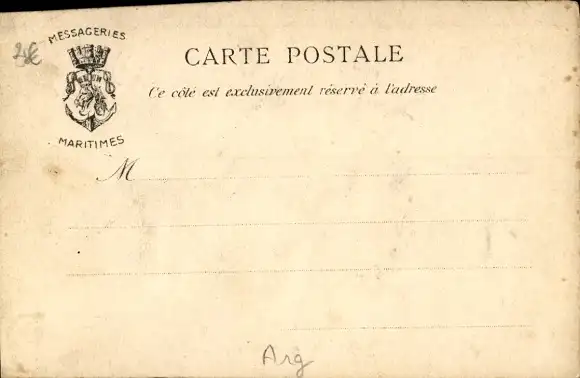 MESSAGERIES
MARITIMES
CARTE POSTALE
Ce côté est exclusivement réservé à l'adresse
M
Arg